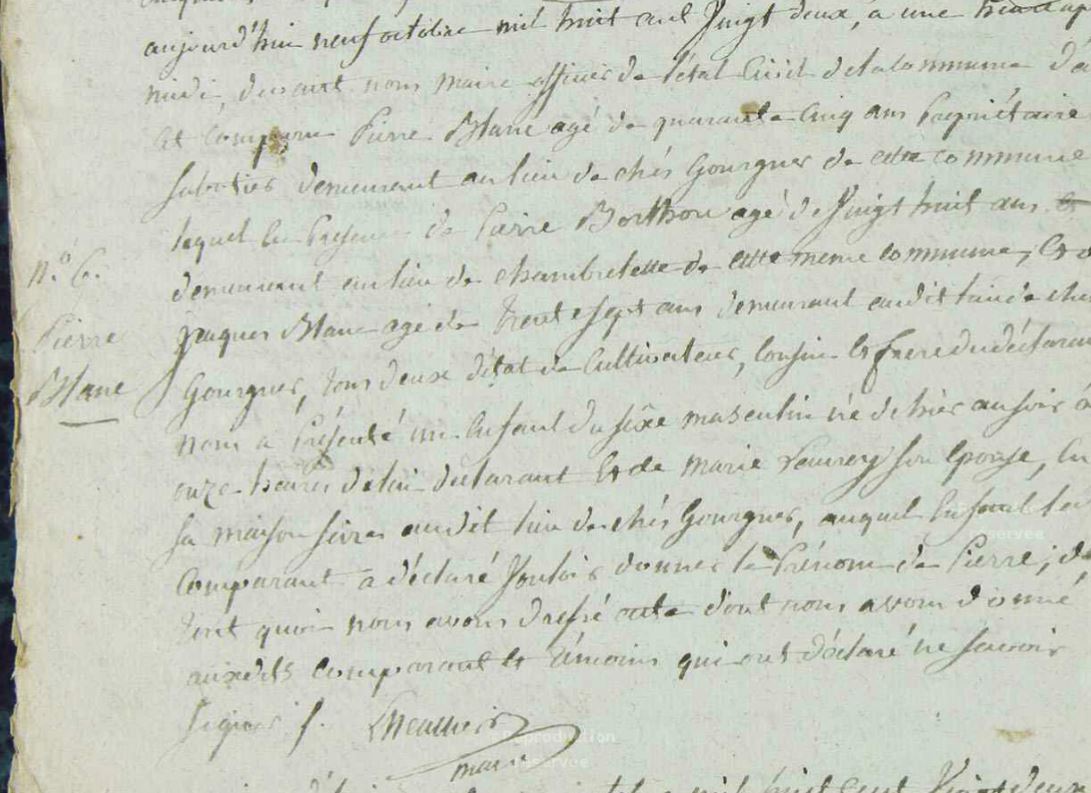 aujourd'hui neuf octobre mil huit cent Vingt deux, a une heure ap
midi, devant nous maire officier de l'état Civil de la commune de
et comparu Pierre Blanc agé de quarante Cinq ans Propriétaire
sabotier demeurant au lieu de chés Gourgues de cette commune
lequel En Presence de Pierre Borthou agé de Vingt huit ans
n.º 6.
demeurant au lieu de chambrelette de cette meme commune, Et
Pierre
Jaques Blanc agé de trente sept ans demeurant audit lieu de chés
Blanc
Gourgues, tous deux d'état de Cultivateur, Cousin Et frere du déclarant
nous a Présenté un Enfant du sexe masculin né d'hier au soir a
onze heures de lui declarant Et de marie son Epouse, En
sa maison audit lieu de chés Gourgues, auquel Enfant le
Comparant a déclaré Vouloir donner le Prénom de Pierre; de
tout quoi nous avons dressé acte dont nous avons donné
auxdits comparant Et témoins qui ont déclaré ne savoir
signer
maire
mil huit cent Vingt deux
Reproduction
réservée